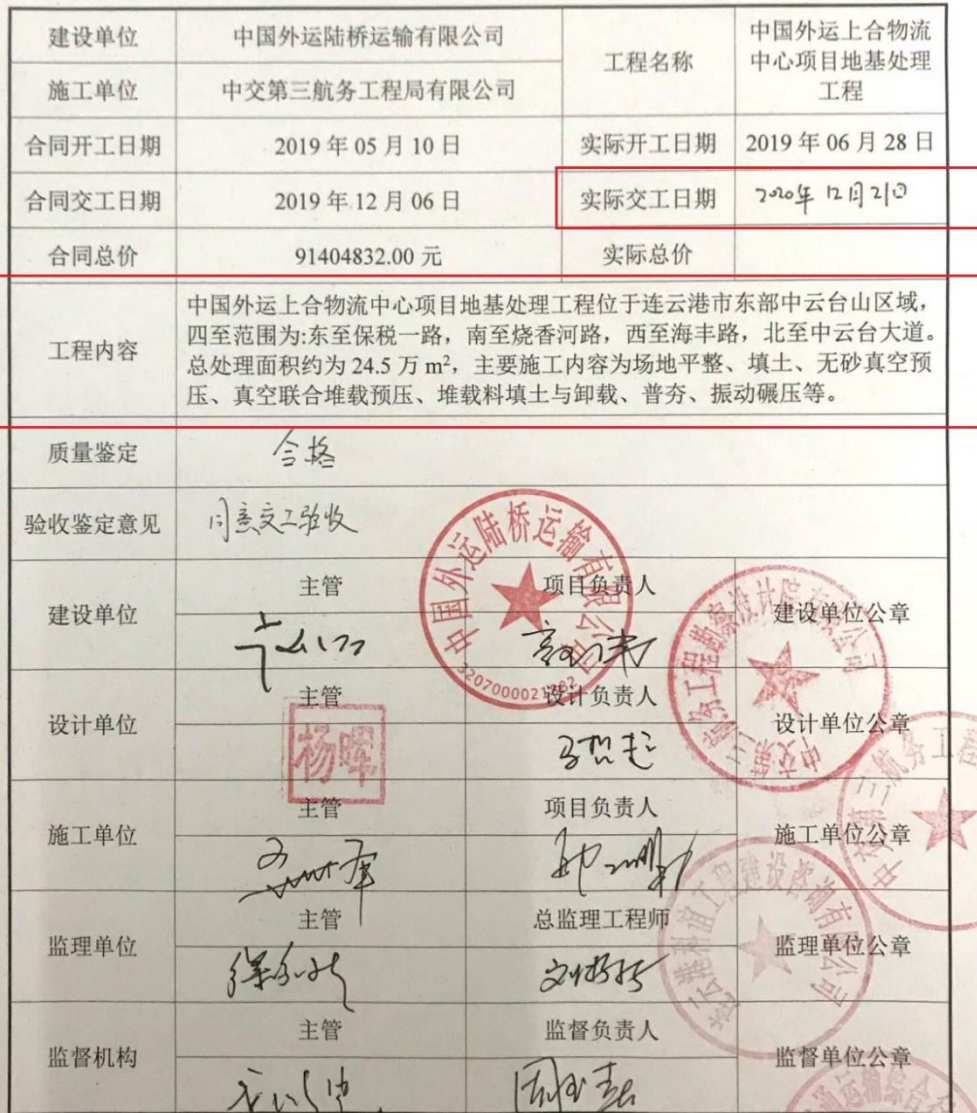 建设单位 中国外运陆桥运输有限公司 工程名称 中国外运上合物流
中心项目地基处理
工程
施工单位 中交第三航务工程局有限公司
合同开工日期 2019 年 05 月 10 日 实际开工日期 2019 年 06 月 28 日
合同交工日期 2019 年 12 月 06 日 实际交工日期 2020年 12月21日
合同总价 91404832.00 元 实际总价
工程内容
中国外运上合物流中心项目地基处理工程位于连云港市东部中云台山区域，
四至范围为:东至保税一路，南至烧香河路，西至海丰路，北至中云台大道。
总处理面积约为 24.5 万 m²，主要施工内容为场地平整、填土、无砂真空预
压、真空联合堆载预压、堆载料填土与卸载、普夯、振动碾压等。
质量鉴定 合格
验收鉴定意见 同意交工验收
建设单位 主管 项目负责人 建设单位公章
中国外运陆桥运输有限公司
设计单位 主管 设计负责人 设计单位公章
杨晖
中交第三航务工程勘察设计院有限公司
施工单位 主管 项目负责人 施工单位公章
中交第三航务工程
监理单位 主管 总监理工程师 监理单位公章
工程建设咨询有限公司
监督机构 主管 监督负责人 监督单位公章